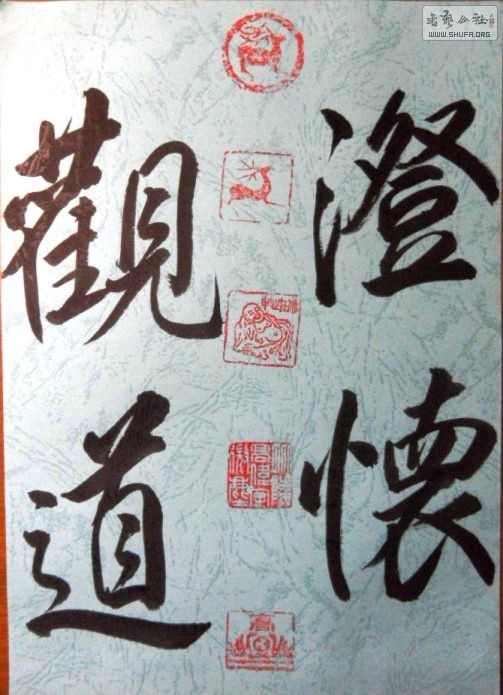 澄懷
觀道
書藝公社
WWW.SHUFA.ORG